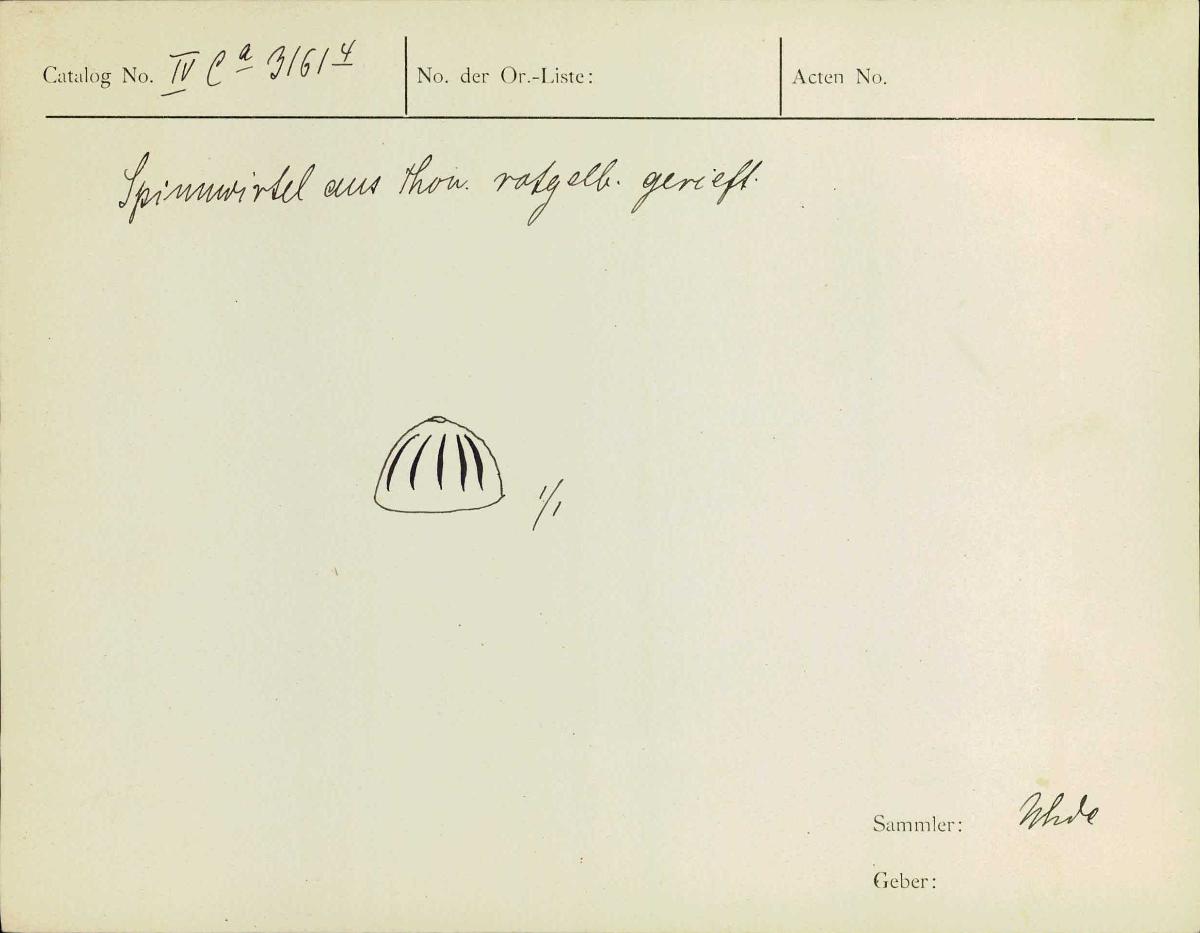 Catalog No. IV Ca 31614
No. der Or.-Liste:
Acten No.
Spinnwirtel aus Thon. rotgelb. gerieft.
1/1
Sammler: Uhde
Geber: